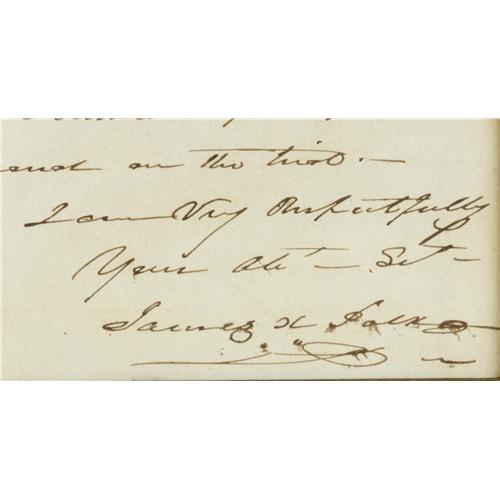 and on the trial. —
I am Very Respectfully
Your Obt — Svt —
James K Polk